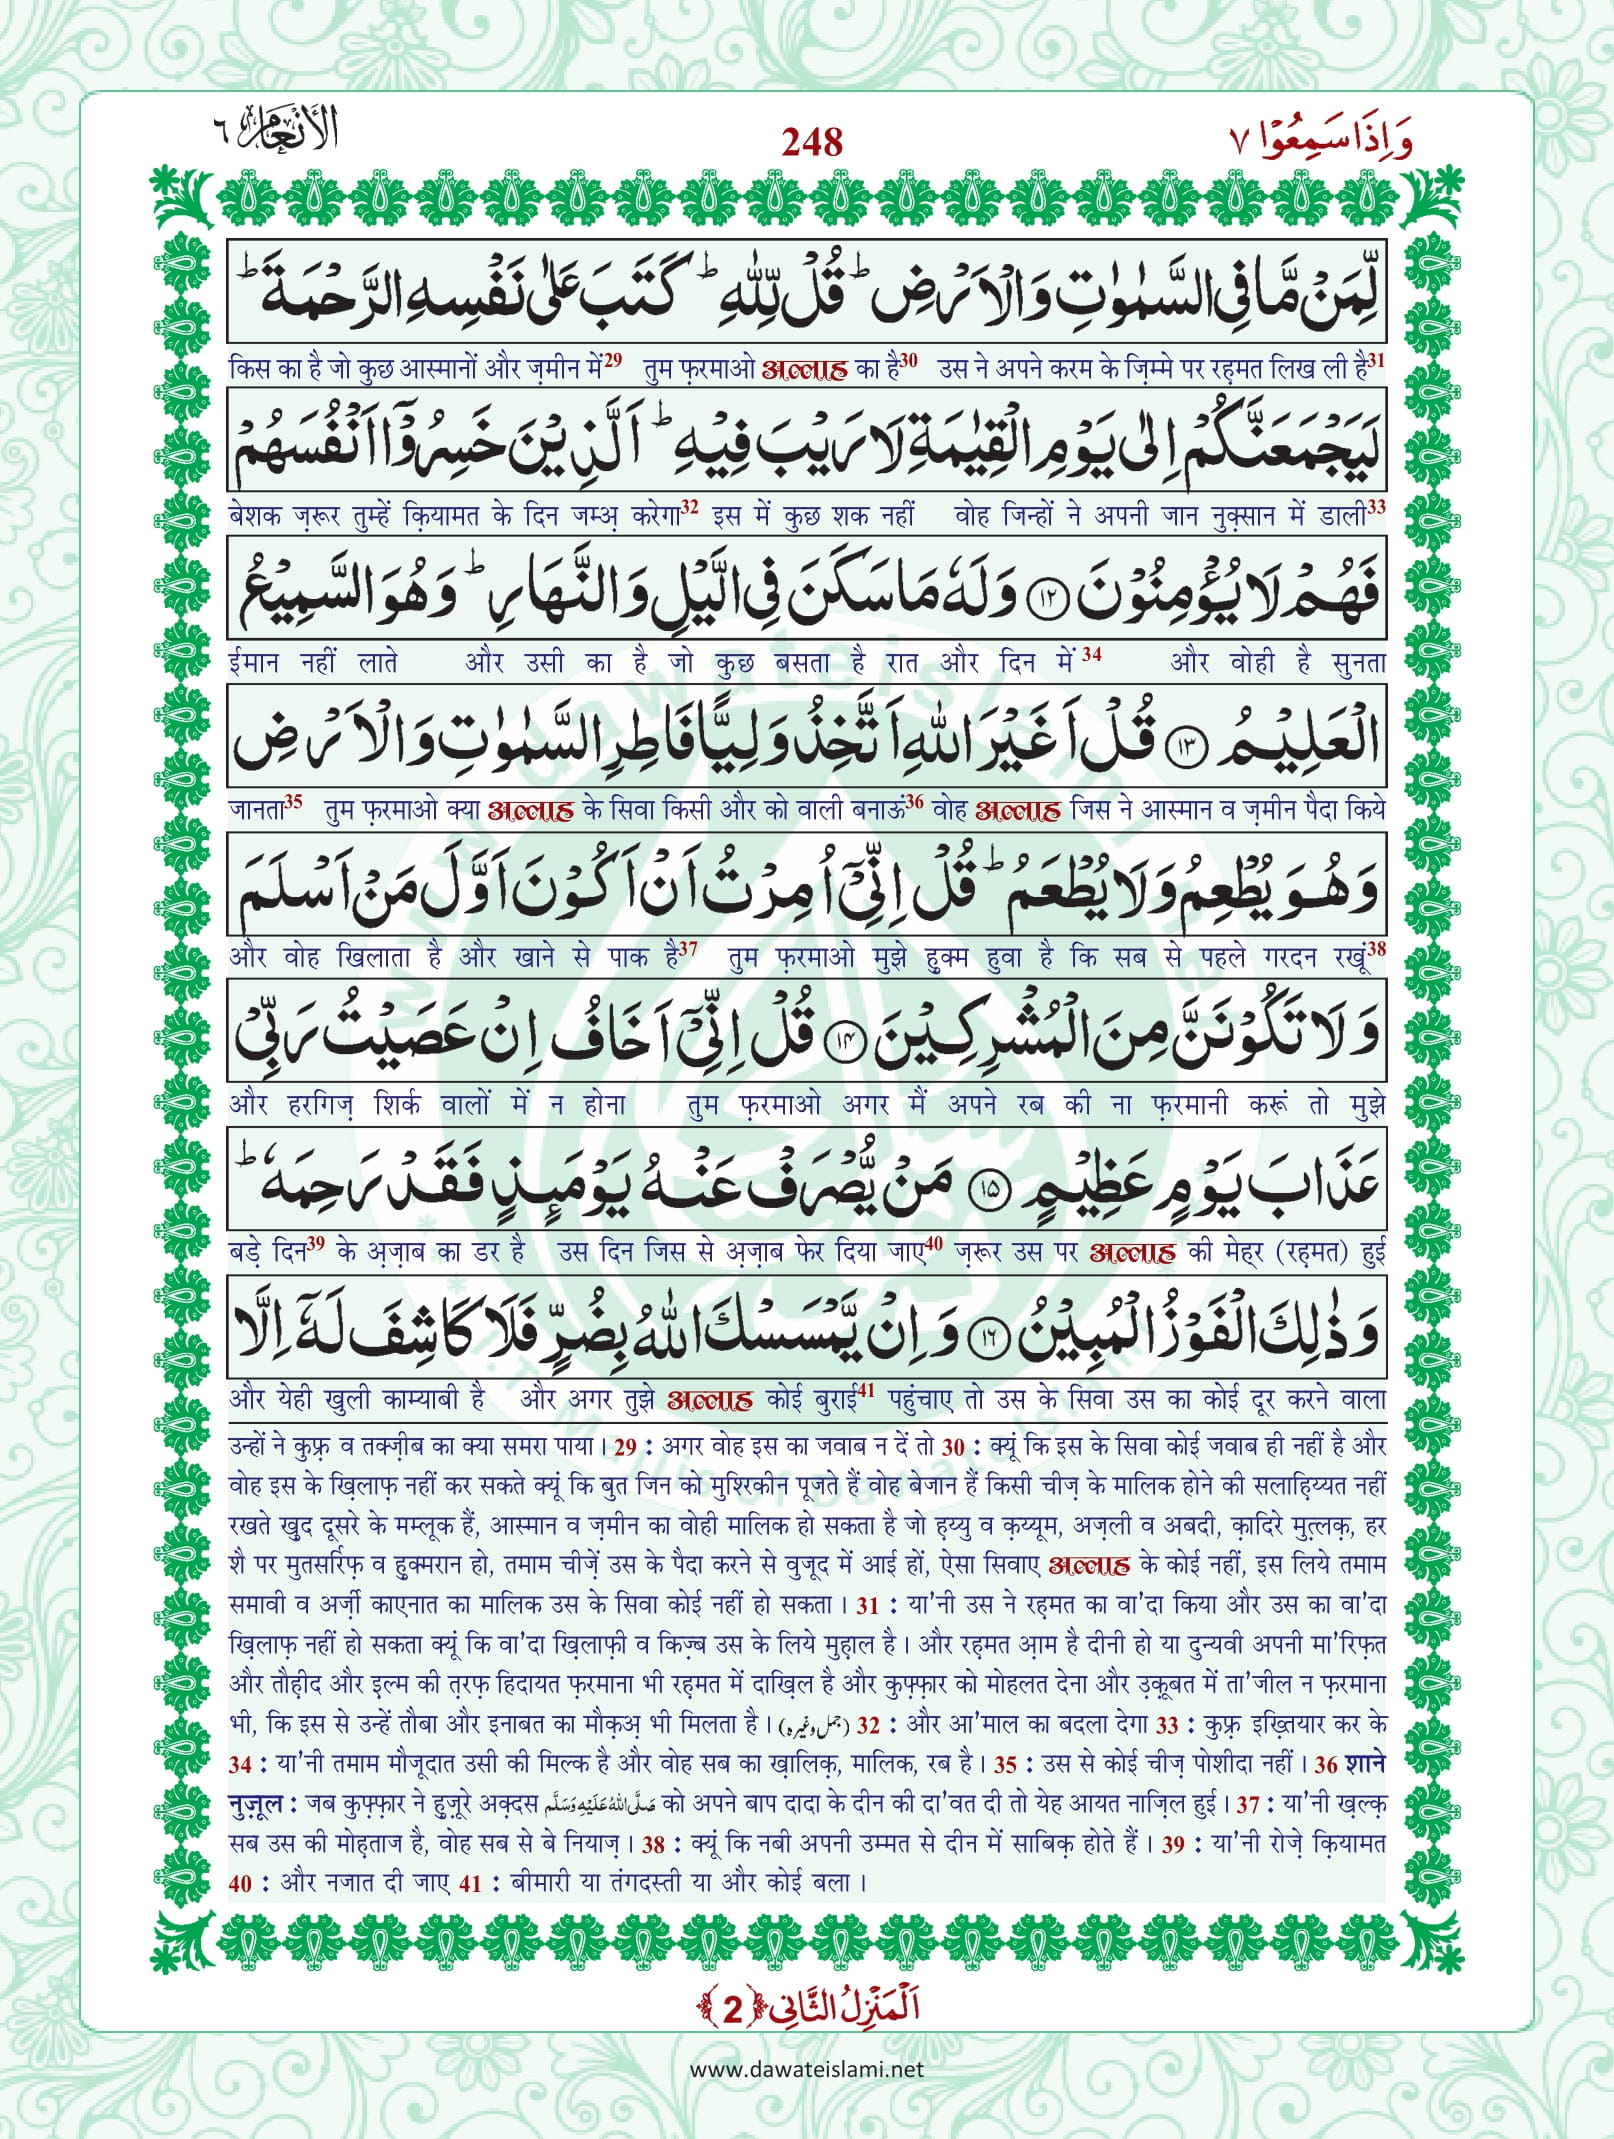 الأنعام ٦
248
وَاِذَا سَمِعُوْا ٧
لِّمَنْ مَّا فِی السَّمٰوٰتِ وَالْاَرْضِ ؕ قُلْ لِّلّٰهِ ؕ كَتَبَ عَلٰى نَفْسِهِ الرَّحْمَةَ ؕ
किस का है जो कुछ आस्मानों और ज़मीन में29 तुम फ़रमाओ अल्लाह का है30 उस ने अपने करम के ज़िम्मे पर रह़मत लिख ली है31
لَيَجْمَعَنَّكُمْ اِلٰى يَوْمِ الْقِيٰمَةِ لَا رَيْبَ فِيْهِ ؕ اَلَّذِيْنَ خَسِرُوْۤا اَنْفُسَهُمْ
बेशक ज़रूर तुम्हें क़ियामत के दिन जम्अ़ करेगा32 इस में कुछ शक नहीं वोह जिन्हों ने अपनी जान नुक़्सान में डाली33
فَهُمْ لَا يُؤْمِنُوْنَ ﴿۱۲﴾ وَلَهٗ مَا سَكَنَ فِی الَّيْلِ وَالنَّهَارِ ؕ وَهُوَ السَّمِيْعُ
ईमान नहीं लाते और उसी का है जो कुछ बसता है रात और दिन में34 और वोही है सुनता
الْعَلِيْمُ ﴿۱۳﴾ قُلْ اَغَيْرَ اللّٰهِ اَتَّخِذُ وَلِيًّا فَاطِرِ السَّمٰوٰتِ وَالْاَرْضِ
जानता35 तुम फ़रमाओ क्या अल्लाह के सिवा किसी और को वाली बनाऊं36 वोह अल्लाह जिस ने आस्मान व ज़मीन पैदा किये
وَهُوَ يُطْعِمُ وَلَا يُطْعَمُ ؕ قُلْ اِنِّیْۤ اُمِرْتُ اَنْ اَكُوْنَ اَوَّلَ مَنْ اَسْلَمَ
और वोह खिलाता है और खाने से पाक है37 तुम फ़रमाओ मुझे हुक्म हुवा है कि सब से पहले गरदन रखूं38
وَلَا تَكُوْنَنَّ مِنَ الْمُشْرِكِيْنَ ﴿۱۴﴾ قُلْ اِنِّیْۤ اَخَافُ اِنْ عَصَيْتُ رَبِّیْ
और हरगिज़ शिर्क वालों में न होना तुम फ़रमाओ अगर मैं अपने रब की ना फ़रमानी करूं तो मुझे
عَذَابَ يَوْمٍ عَظِيْمٍ ﴿۱۵﴾ مَنْ يُّصْرَفْ عَنْهُ يَوْمَئِذٍ فَقَدْ رَحِمَهٗ ؕ
बड़े दिन39 के अ़ज़ाब का डर है उस दिन जिस से अ़ज़ाब फेर दिया जाए40 ज़रूर उस पर अल्लाह की मेह्र (रह़मत) हुई
وَذٰلِكَ الْفَوْزُ الْمُبِيْنُ ﴿۱۶﴾ وَاِنْ يَّمْسَسْكَ اللّٰهُ بِضُرٍّ فَلَا كَاشِفَ لَهٗۤ اِلَّا
और येही खुली काम्याबी है और अगर तुझे अल्लाह कोई बुराई41 पहुंचाए तो उस के सिवा उस का कोई दूर करने वाला
उन्हों ने कुफ़्र व तक्ज़ीब का क्या समरा पाया। 29 : अगर वोह इस का जवाब न दें तो 30 : क्यूं कि इस के सिवा कोई जवाब ही नहीं है और
वोह इस के ख़िलाफ़ नहीं कर सकते क्यूं कि बुत जिन को मुश्रिकीन पूजते हैं वोह बेजान हैं किसी चीज़ के मालिक होने की सलाहि़य्यत नहीं
रखते ख़ुद दूसरे के मम्लूक हैं, आस्मान व ज़मीन का वोही मालिक हो सकता है जो ह़य्यु व क़य्यूम, अज़ली व अबदी, क़ादिरे मुत़्लक़, हर
शै पर मुतसर्रिफ़ व हुक्मरान हो, तमाम चीज़ें उस के पैदा करने से वुजूद में आई हों, ऐसा सिवाए अल्लाह के कोई नहीं, इस लिये तमाम
समावी व अर्ज़ी काएनात का मालिक उस के सिवा कोई नहीं हो सकता। 31 : या'नी उस ने रह़मत का वा'दा किया और उस का वा'दा
ख़िलाफ़ नहीं हो सकता क्यूं कि वा'दा ख़िलाफ़ी व किज़्ब उस के लिये मुह़ाल है। और रह़मत आ़म है दीनी हो या दुन्यवी अपनी मा'रिफ़त
और तौह़ीद और इ़ल्म की त़रफ़ हिदायत फ़रमाना भी रह़मत में दाख़िल है और कुफ़्फ़ार को मोहलत देना और उ़क़ूबत में ता'जील न फ़रमाना
भी, कि इस से उन्हें तौबा और इनाबत का मौक़अ़ भी मिलता है। (جمل وغیرہ) 32 : और आ'माल का बदला देगा 33 : कुफ़्र इख़्तियार कर के
34 : या'नी तमाम मौजूदात उसी की मिल्क है और वोह सब का ख़ालिक़, मालिक, रब है। 35 : उस से कोई चीज़ पोशीदा नहीं। 36 शाने
नुज़ूल : जब कुफ़्फ़ार ने हुज़ूरे अक़्दस صَلَّى اللهُ عَلَيْهِ وَسَلَّم को अपने बाप दादा के दीन की दा'वत दी तो येह आयत नाज़िल हुई। 37 : या'नी ख़ल्क़
सब उस की मोह़ताज है, वोह सब से बे नियाज़। 38 : क्यूं कि नबी अपनी उम्मत से दीन में साबिक़ होते हैं। 39 : या'नी रोज़े क़ियामत
40 : और नजात दी जाए 41 : बीमारी या तंगदस्ती या और कोई बला।
اَلْمَنْزِلُ الثَّانِی ﴿2﴾
www.dawateislami.net